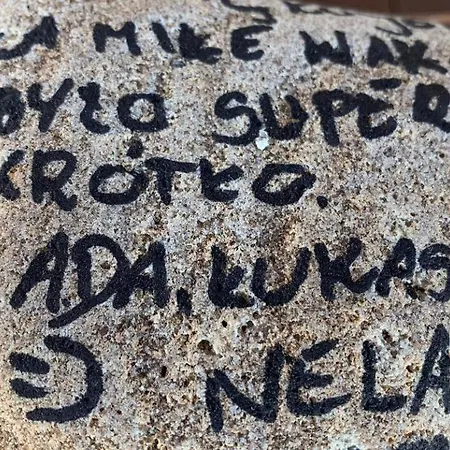 MIKE WAK
BYŁO SUPER
KRÓTKO.
ADA, ŁUKAS
=) NELA